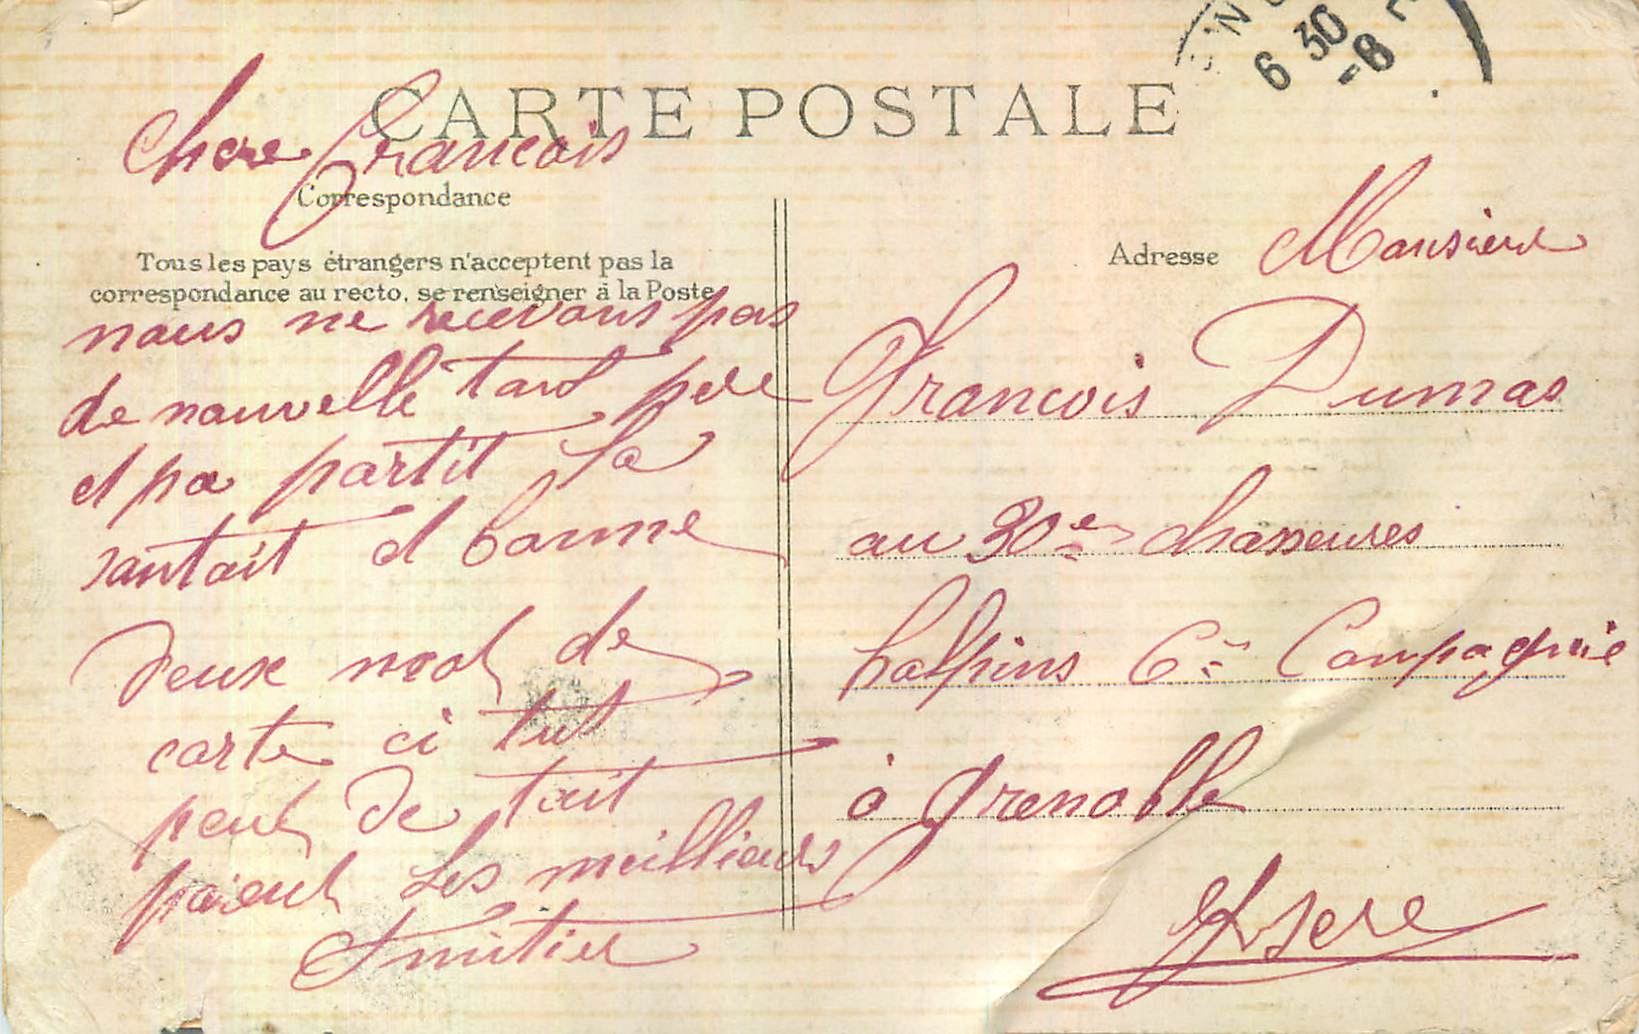 CARTE POSTALE
6 30
-8
Chere Francois
Correspondance
Tous les pays étrangers n'acceptent pas la
correspondance au recto, se renseigner à la Poste
nous ne recevons pas
de nouvelle tant pere
et pa partit la
santait et bonne
deux mot de
carte ci tut
peut de tait
paient Les meillieurs
Amitier
Adresse
Monsieur
Francois Dumas
au 30e chasseures
balpins 6e Compagnie
à Grenoble
Isere